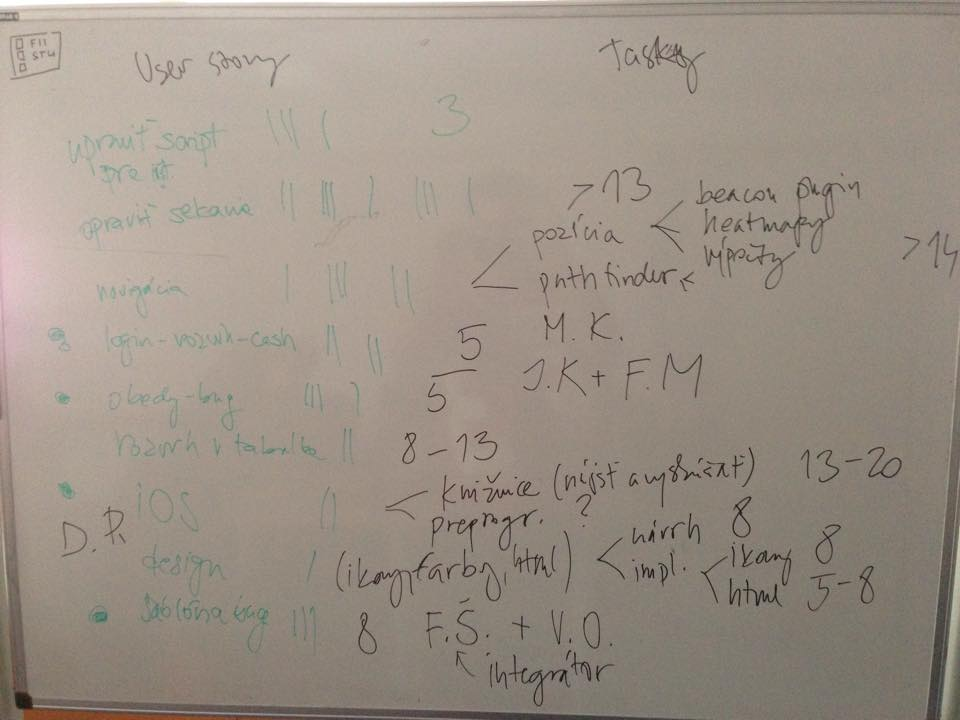 FII STU
User story Tasky
upraviť script 3
pre
opraviť sekanie > 13
pozícia < beacon plugin
heatmapy
výpočty > 14
navigácia < pathfinder
login-rozvrh-cash 5 M. K.
obedy-bug 5 J.K + F.M
rozvrh v tabulke 8-13
iOS < knižnice (nájsť a vyskúšať) 13-20
preprogr. ?
D.P.
design (ikony, farby, html) < návrh 8
impl. < ikony 8
html 5-8
šablóna bug 8 F.Š. + V.O.
integrátor